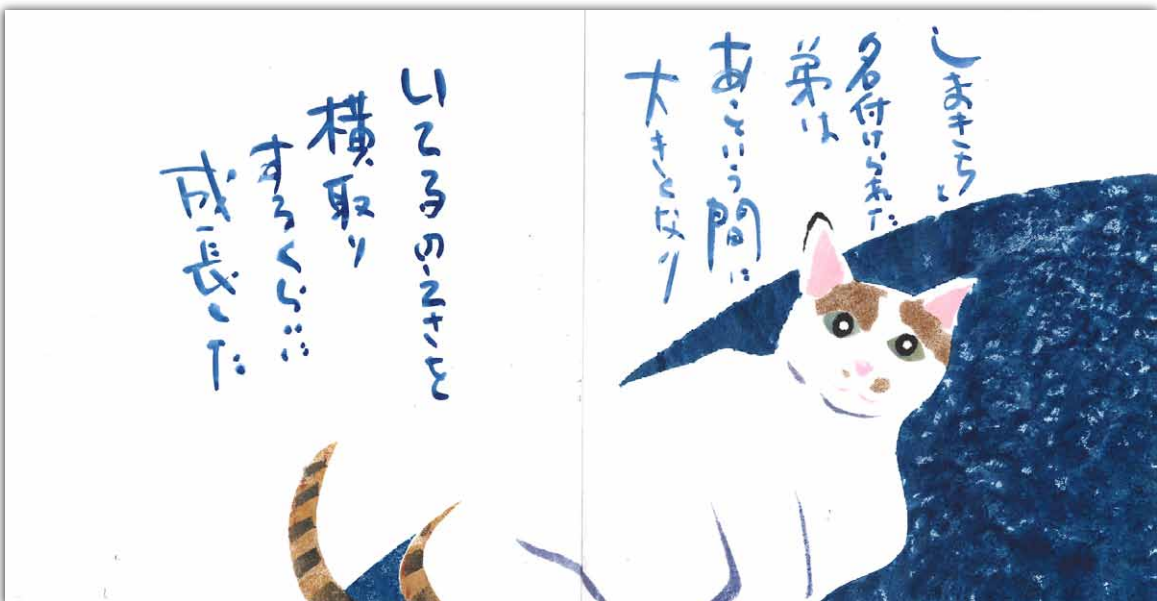 しまきちと
名付けられた
弟は
あっという間に
大きくなり
いてるのえさを
横取り
するくらいに
成長した